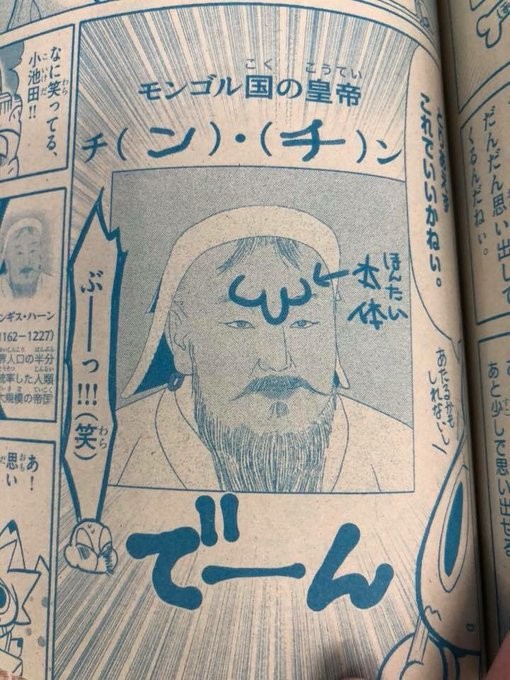 だんだん思い出して
くるんだねい。
あと少しで思い出せ
これでいいかねい。
あたるかも
しれない
こく こうてい
モンゴル国の皇帝
チ(ン)・(チ)ン
ほんたい
本体
ぶーーっ!!!(笑)
わら
でーん
なに笑ってる、
わら
小池田!!
こいけだ
ンギス・ハーン
1162−1227)
界人口の半分
した人類
大規模の帝国
あ!
思い
おも